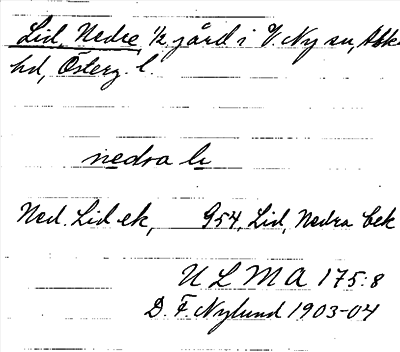 Lid, Nedre, 1/2 gård i V. Ny sn, Aska
hd, Österg. l.
nedra li
Ned. Lid ek, 954, Lid, Nedra bek
U L M A 175:8
D. F. Nylund 1903-04